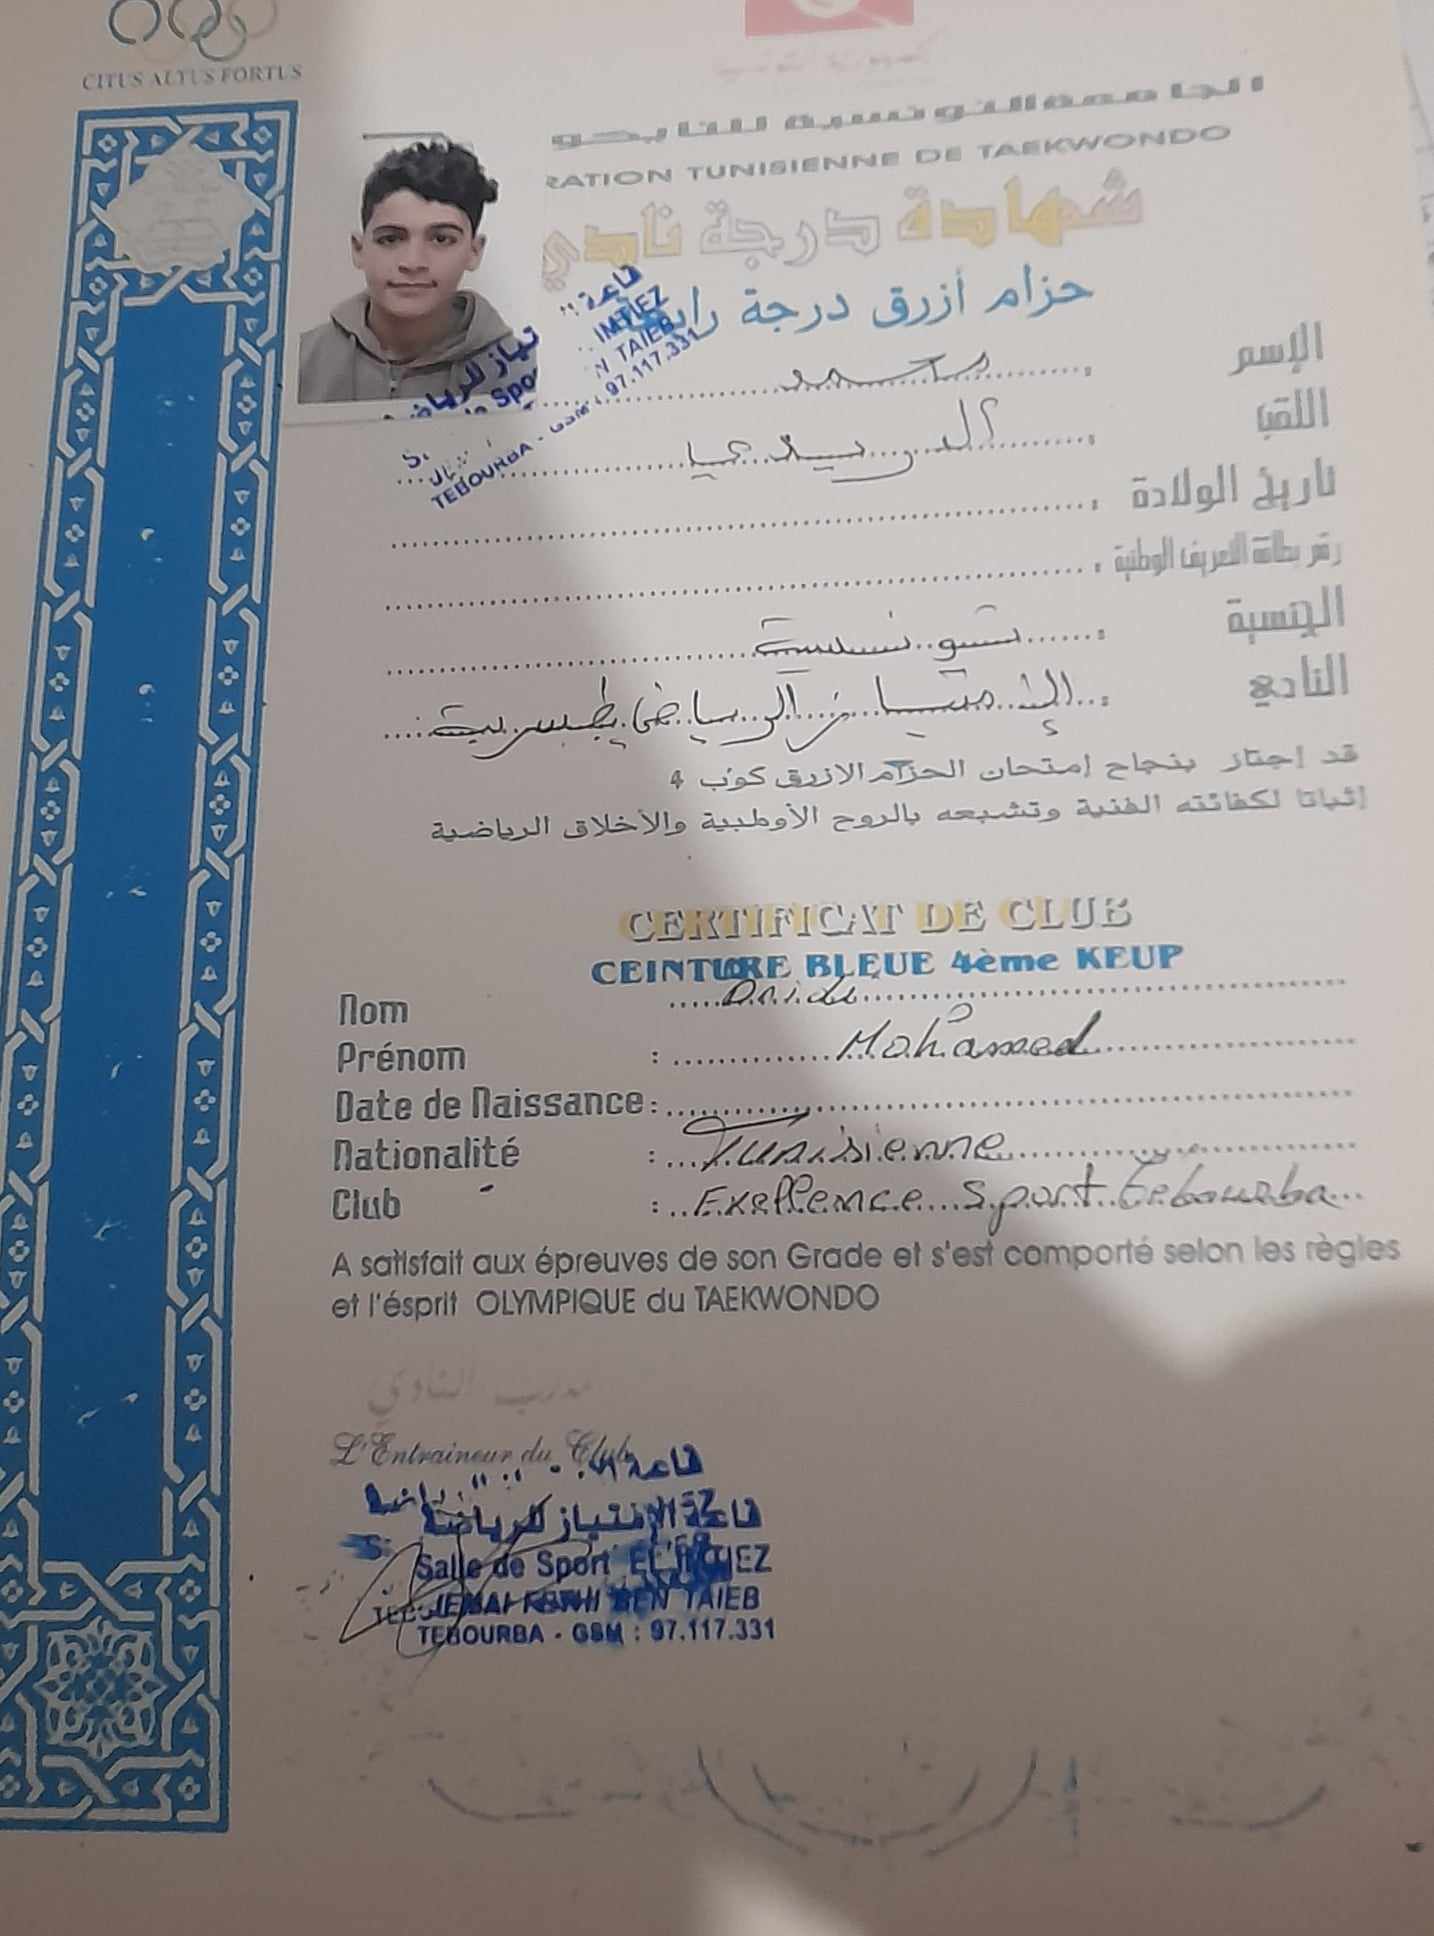 CITUS ALTUS FORTUS
الجمهورية التونسية
الجامعة التونسية للتايكو
RATION TUNISIENNE DE TAEKWONDO
شهادة درجة نادي
حزام أزرق درجة رابعة
الإسم : محمد
اللقب :
تاريخ الولادة :
رقم بطاقة التعريف الوطنية :
الجنسية : تونسية
النادي : الإمتياز الرياضي بطبربة
قد إجتاز بنجاح إمتحان الحزام الازرق كوب 4
إثباتا لكفائته الفنية وتشبعه بالروح الأولمبية والأخلاق الرياضية
CERTIFICAT DE CLUB
CEINTURE BLEUE 4ème KEUP
Nom Dridi
Prénom : Mohamed
Date de Naissance :
Nationalité : Tunisienne
Club : Exellence Sport Tebourba
A satisfait aux épreuves de son Grade et s'est comporté selon les règles
et l'ésprit OLYMPIQUE du TAEKWONDO
مدرب النادي
L'Entraineur du Club
قاعة الإمتياز للرياضة
Salle de Sport EL IMTIEZ
JEMAI FETHI BEN TAIEB
TEBOURBA - GSM : 97.117.331